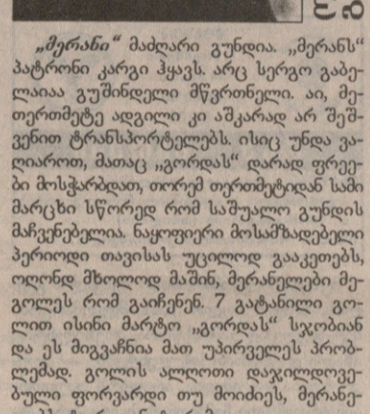 „მერანი“ მაძღარი გუნდია. „მერანს“
პატრონი კარგი ჰყავს. არც სერგო გაბე-
ლაიაა გუშინდელი მწვრთნელი. აი, მე-
თერთმეტე ადგილი კი აშკარად არ შეშ-
ვენით ტრანსპორტელებს. ისიც უნდა ვა-
ღიაროთ, მათაც „გორდას“ დარად ფრეე-
ბი მოსჭარბდათ, თორემ თერთმეტიდან სამი
მარცხი სწორედ რომ საშუალო გუნდის
მაჩვენებელია. ნაყოფიერი მოსამზადებელი
პერიოდი თავისას უცილოდ გააკეთებს,
ოღონდ მხოლოდ მაშინ, მერანელები მე-
გოლეს რომ გაიჩენენ. 7 გატანილი გო-
ლით ისინი მარტო „გორდას“ სჯობიან
და ეს მიგვაჩნია მათ უპირველეს პრობ-
ლემად. გოლის ალღოთი დაჯილდოვე-
ბული ფორვარდი თუ მოიძიეს, მერანე-